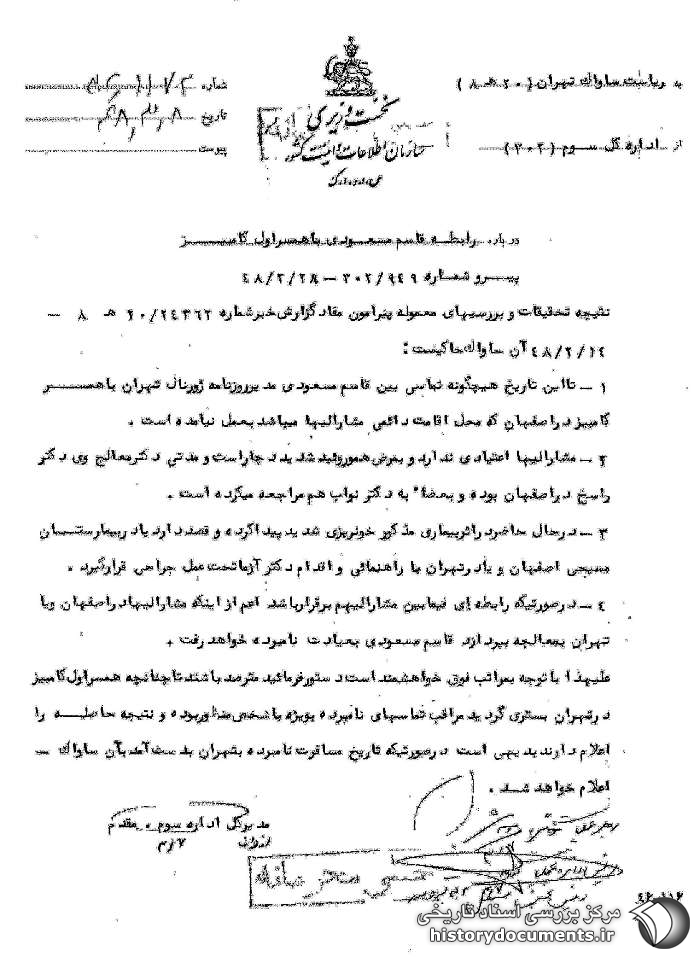 به ریاست ساواک تهران (۲۰ هـ ۸)
شماره
نخست وزیری
تاریخ ۴۸/۳/۸
سازمان اطلاعات و امنیت کشور
س.ا.و.ا.ک
از اداره کل سوم (۳۰۲)
پیوست
درباره رابطه قاسم مسعودی با همسر اول کامبیز
پیرو شماره ۳۰۲/۹۴۹ - ۴۸/۲/۲۸
نتیجه تحقیقات و بررسیهای معموله پیرامون مفاد گزارش خبر شماره ۲۰/۲۴۳۶۲ هـ ۸ -
۴۸/۲/۱۴ آن ساواک حاکیست :
۱ - تا این تاریخ هیچگونه تماسی بین قاسم مسعودی مدیر روزنامه ژورنال تهران با همسر
کامبیز در اصفهان که محل اقامت دائمی مشارالیها میباشد بعمل نیامده است .
۲ - مشارالیها اعتیادی ندارد و بمرض هموروئید شدید دچار است و مدتی دکتر معالج وی دکتر
راسخ در اصفهان بوده و بعضا" به دکتر نواب هم مراجعه میکرده است .
۳ - در حال حاضر در اثر بیماری مذکور خونریزی شدید پیدا کرده و قصد دارد یا در بیمارستان
مسیحی اصفهان و یا در تهران با راهنمائی و اقدام دکتر آزما تحت عمل جراحی قرار گیرد .
۴ - در صورتیکه رابطه ای فیمابین مشارالیهم برقرار باشد اعم از اینکه مشارالیها در اصفهان و یا
تهران بمعالجه بپردازد قاسم مسعودی بعیادت نامبرده خواهد رفت .
علیهذا با توجه بمراتب فوق خواهشمند است دستور فرمائید مترصد باشند تا چنانچه همسر اول کامبیز
در تهران بستری گردید مراقب تماسهای نامبرده بویژه با شخص منظور بوده و نتیجه حاصله را
اعلام دارند بدیهی است در صورتیکه تاریخ مسافرت نامبرده بتهران بدست آمد بآن ساواک -
اعلام خواهد شد .
مدیر کل اداره سوم . مقدم
خیلی محرمانه
مرکز بررسی اسناد تاریخی
historydocuments.ir